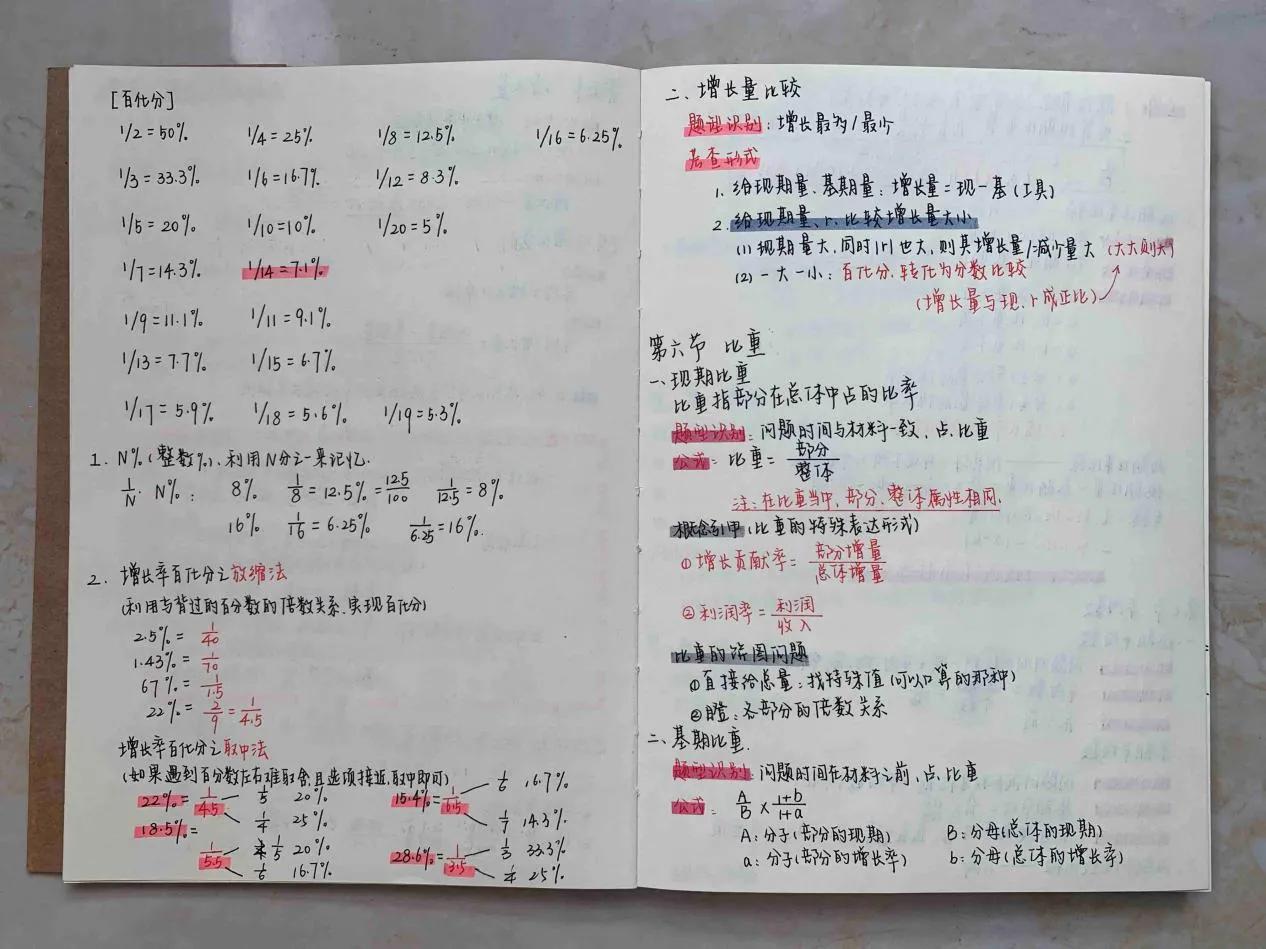 [百化分]
1/2=50% 1/4=25% 1/8=12.5% 1/16=6.25%
1/3=33.3% 1/6=16.7% 1/12=8.3%
1/5=20% 1/10=10% 1/20=5%
1/7=14.3% 1/14=7.1%
1/9=11.1% 1/11=9.1%
1/13=7.7% 1/15=6.7%
1/17=5.9% 1/18=5.6% 1/19=5.3%
1. N%(整数%)、利用N分之一来记忆.
1/N. N%: 8% 1/8=12.5%=12.5/100 1/12.5=8%
16% 1/16=6.25% 1/6.25=16%.
2. 增长率百化分之放缩法
(利用与背过的百分数的倍数关系、实现百化分)
2.5%=1/40
1.43%=1/70
67%=1/1.5
22%=2/9=1/4.5
增长率百化分之取中法
(如果遇到百分数左右难取舍,且选项接近,取中即可)
22%=1/4.5 1/5 20%
1/4 25%
18.5%=
1/5.5 1/5 20%
1/6 16.7%
15.4%=1/6.5 1/6 16.7%
1/7 14.3%
28.6%=1/3.5 1/3 33.3%
1/4 25%
二、增长量比较
题型识别:增长最多/最少
考查形式
1. 给现期量、基期量:增长量=现-基(工具)
2. 给现期量、r、比较增长量大小
(1)现期量大,同时|r|也大,则其增长量/减少量大(大大则大)
(2)一大一小:百化分、转化为分数比较
(增长量与现、r成正比)
第六节 比重
一、现期比重
比重指部分在总体中占的比率
题型识别:问题时间与材料一致,占、比重
公式:比重=部分/整体
注:在比重当中,部分、整体属性相同.
概念引申(比重的特殊表达形式)
①增长贡献率=部分增量/总体增量
②利润率=利润/收入
比重的饼图问题
①直接给总量:找特殊值(可以口算的那种)
②瞪:各部分的倍数关系
二、基期比重.
题型识别:问题时间在材料之前,占、比重
公式:A/B×1+b/1+a
A:分子(部分的现期) B:分母(总体的现期)
a:分子(部分的增长率) b:分母(总体的增长率)